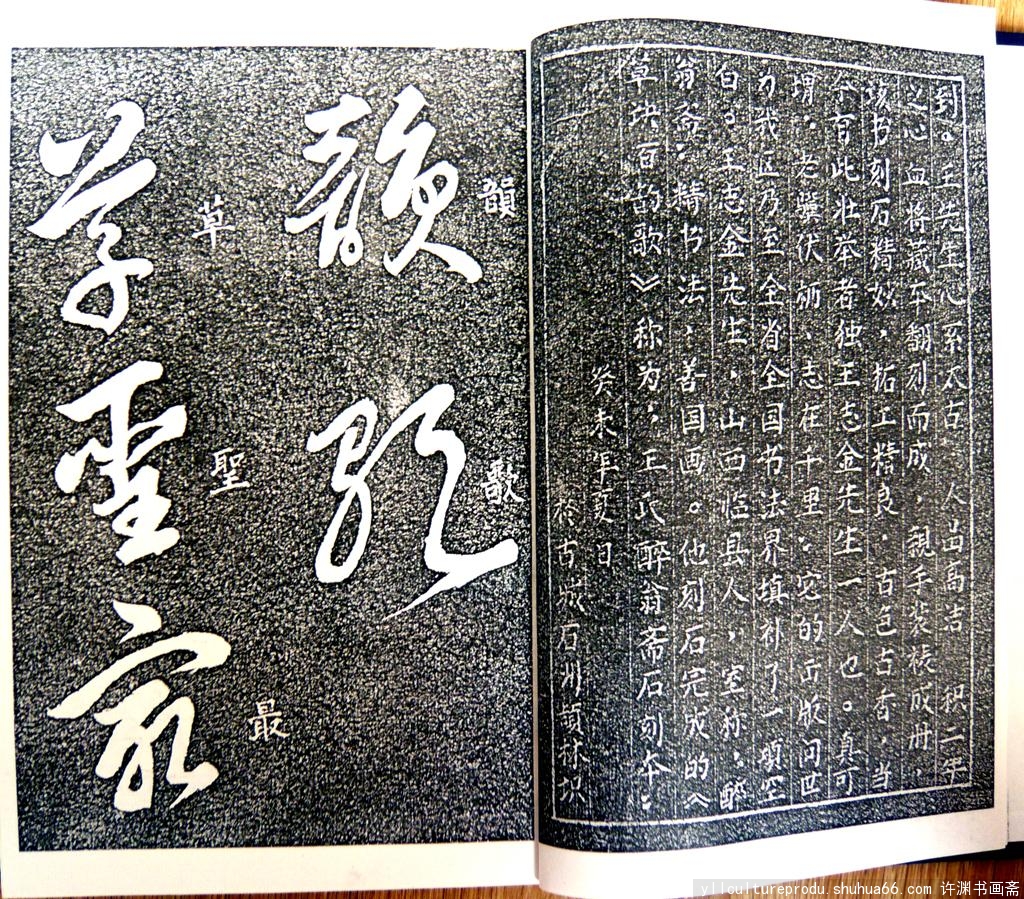 到。王先生心系太古，人品高洁，积二年
之心血将藏本翻刻而成，親手装裱成册，
该书刻石精妙，拓工精良，古色古香，当
今有此壮举者独王志金先生一人也。真可
谓：老骥伏枥，志在千里。它的正版问世
为我区乃至全省全国书法界填补了一項空
白。王志金先生，山西临县人，室称：醉
翁斋：精书法，善国画。他刻石完成的《
草诀百韵歌》称为：王氏醉翁斋石刻本：
癸未年亥日
於古城石州
韻歌
韻
歌
草聖最
草
聖
最
yllcultureprodu.shuhua66.com 许渊书画斋